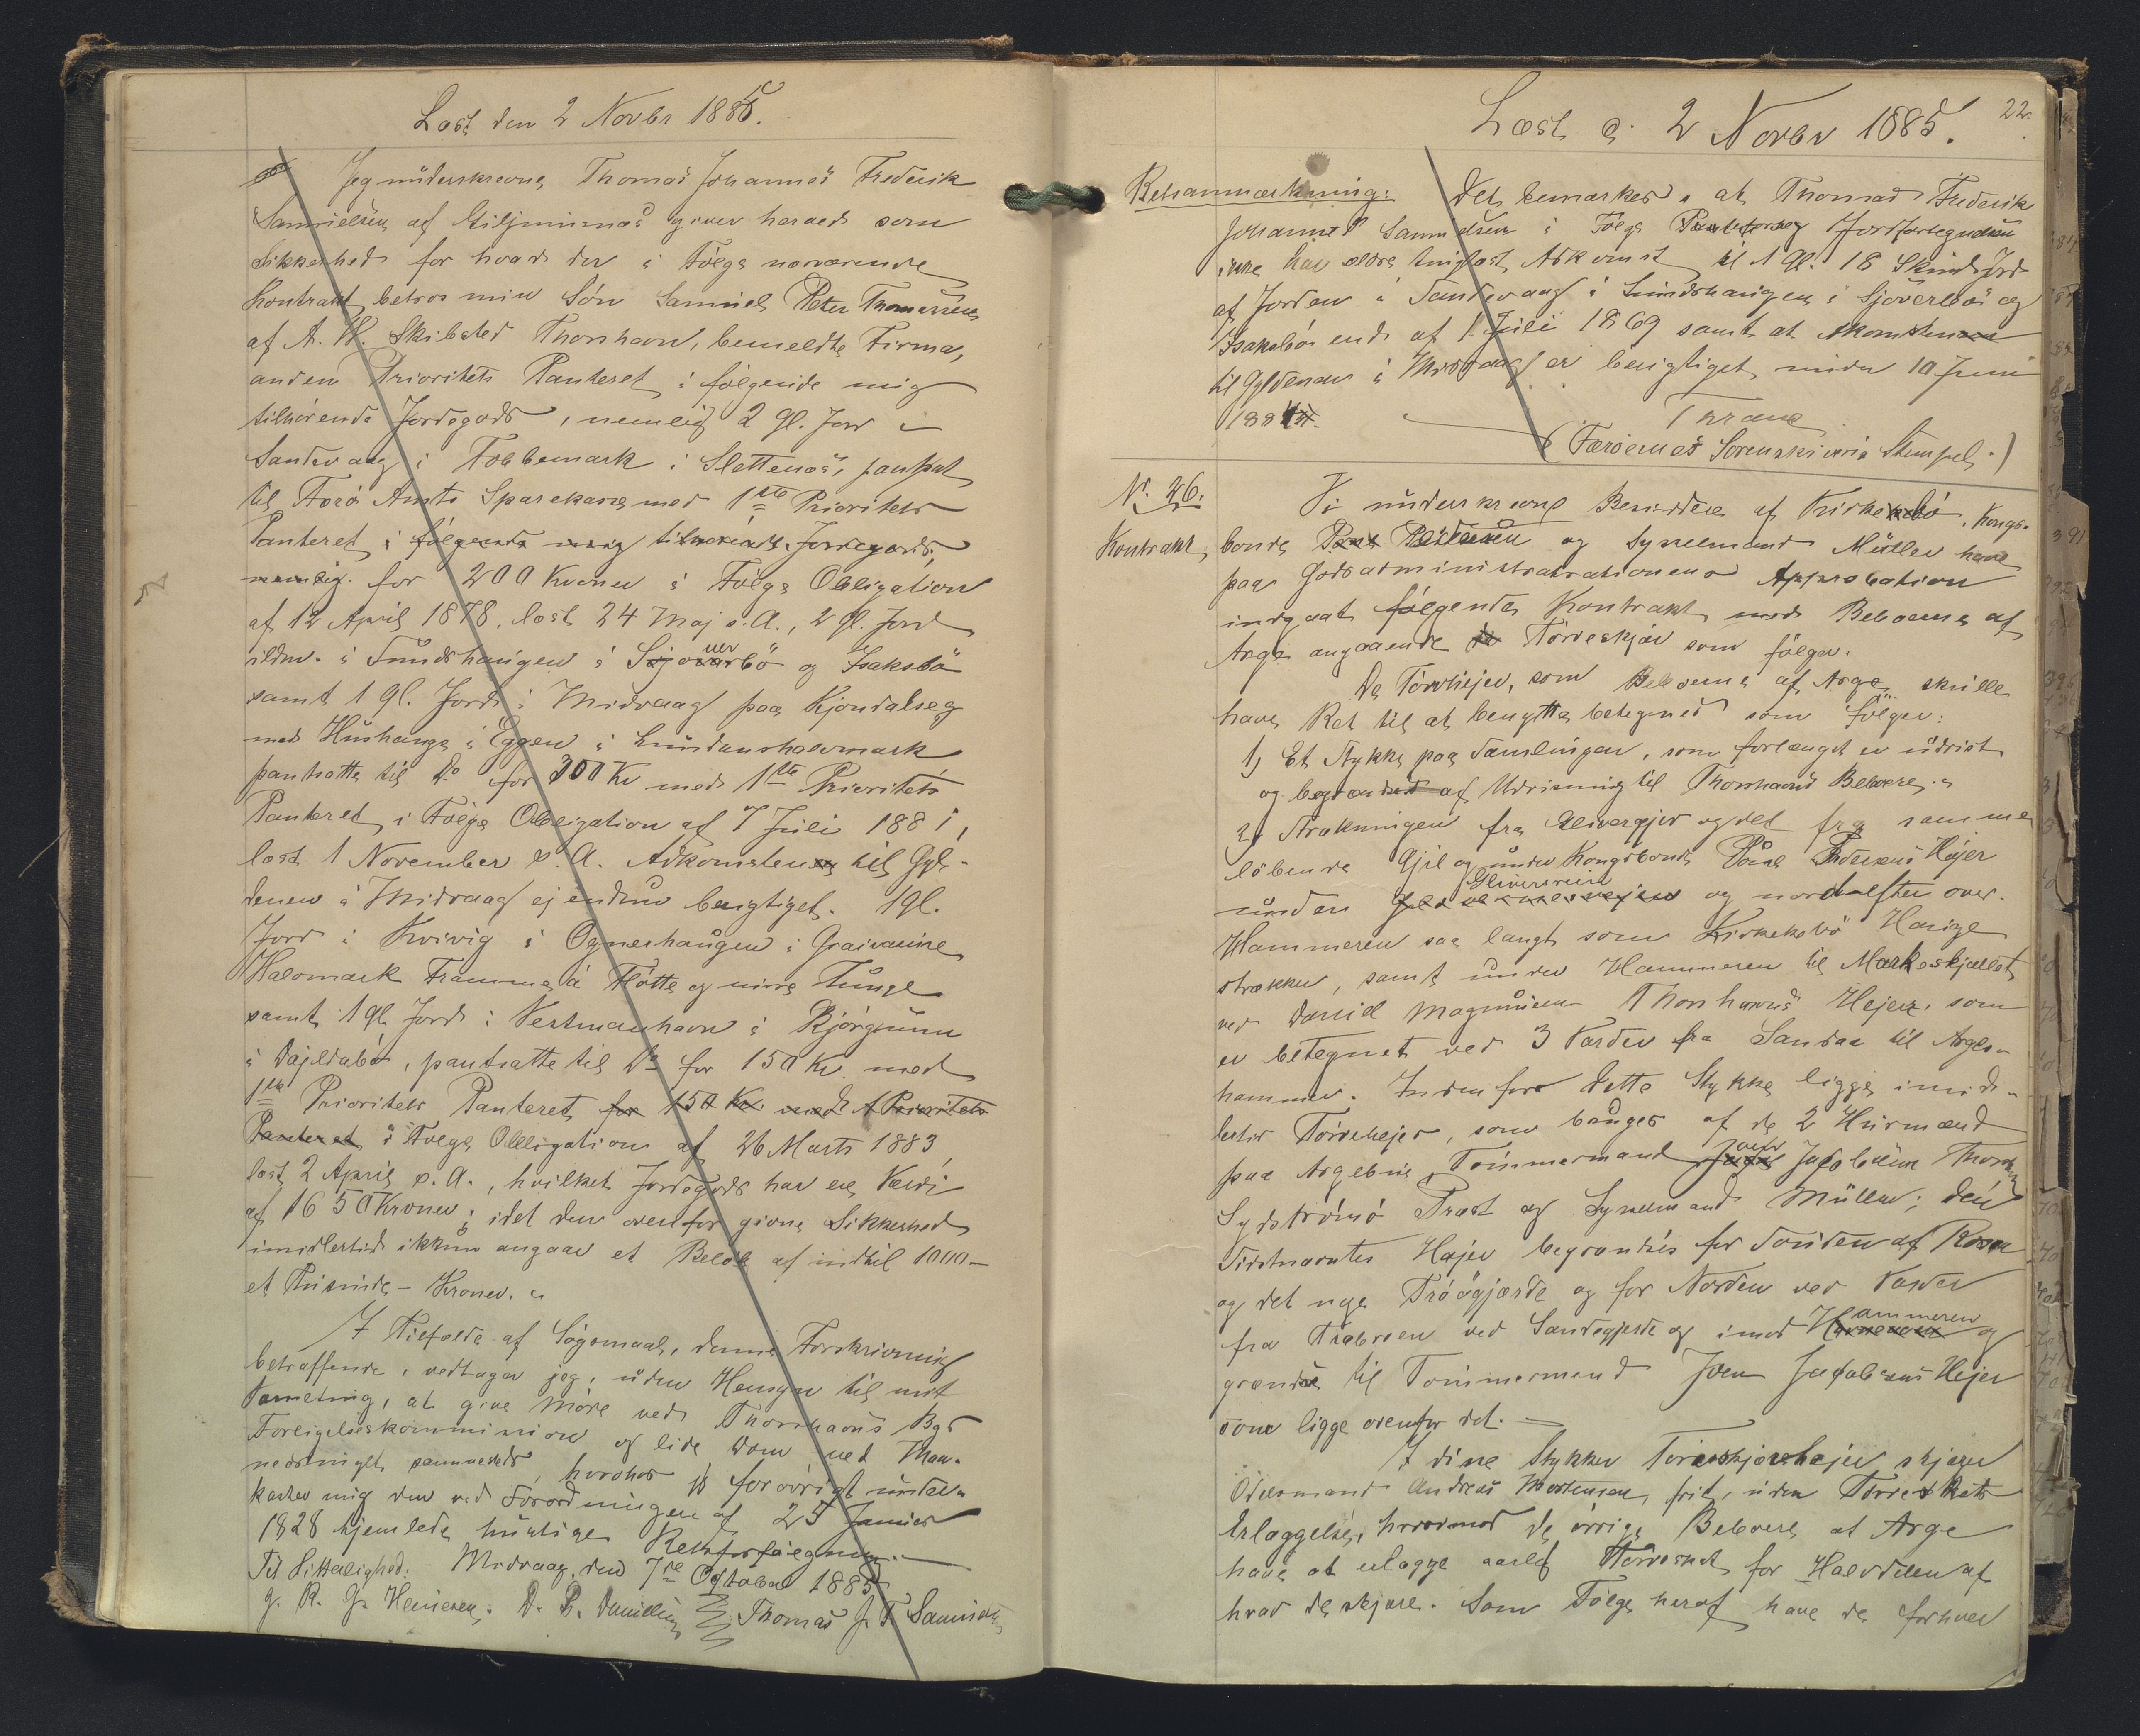 Læst den 2 Novbr 1885.
Jeg underskrevne Thomas Johannes Frederik
Samuelsen af giver herved som
Sikkerhed for hvad der i Følge nærværende
Kontrakt betros min Søn Samuel Peter Thomassen
af A. W. Skibsted Thorshavn, bemeldte Firma,
anden Prioritets Panteret i følgende mig
tilhørende Jordegods, nemlig 2 gl. Jord i
Sandsvaag i Tobbemark i Slettenæs, pantsat
til Færø Amts Sparekasse med 1ste Prioritets
Panteret i følgende mig tilhørende Jordegods,
nemlig for 200 Kroner i Følge Obligation
af 12 April 1878, læst 24 Maj s. A., 2 gl. Jord
i Sundshaugen i Sjoverbö og Isaksbö
samt 1 gl. Jord i Midvaag paa Kjondalseg
med Hushauge i Eggen i
pantsatte til Do for 300 Kr med 1ste Prioritets
Panteret i Følge Obligation af 7 Juli 1881,
læst 1 November s. A. Adkomsten til Gyl-
denen i Midvaag ej endnu berigtiget. 1 gl.
Jord i Kvivig i Ognerhaugen i
Halvmark Framme á Fløtte og
samt 1 gl. Jord i Vestmanhavn i
i Dajldabö, pantsatte til Do for 150 Kr. med
1ste Prioritets Panteret for 150 Kr. med 1 Prioritets
Panteret i Følge Obligation af 26 Marts 1883,
læst 2 April s. A., hvilket Jordegods har en Værdi
af 1650 Kroner; idet den ovenfor givne Sikkerhed
imidlertid ikkun angaar et Beløb af indtil 1000 –
et Tusinde – Kroner.
I Tilfælde af Søgsmaal, denne Forskrivning
betræffende, vedtager jeg, uden Hensyn til mit
Værneting, at give Møde ved Thorshavns Bys
Forligelseskommission og lide Dom ved
sammesteds, hvorhos jeg forøvrigt under-
kaster mig den ved Forordningen af 25 Januar
1828 hjemlede hurtige Retsforfølgning.
Til Vitterlighed: Midvaag, den 7de Oktober 1885
J. R. J. Heinesen. D. P. Danielsen Thomas J. F. Samuelsen
22.
Læst d. 2 Novbr 1885.
Retsanmærkning: Det bemærkes, at Thomas Frederik
Johannes Samuelsen i Følge Jordfortegnelsen
ikke har ældre tinglæst Adkomst til 1 gl. 18 Skind Jord
af Jorden i Sandsvaag i Sundshaugen i Sjoverbö og
Isaksbö end af 1 Juli 1869 samt at Adkomsten
til Gyldenen i Midvaag er berigtiget under 10 Juni
1884.
(Færøernes Sorenskriveris Stempel.)
No. 26.
Kontrakt,
Vi underskrevne Besiddere af Kirkebö, Kongs-
bonde og Sysselmand Müller have
paa Godsadministrationens Approbation
indgaaet følgende Kontrakt med Beboerne af
Arge angaaende Tørveskjær som følger.
De Tørvhejer, som Beboerne af Arge skulle
have Ret til at benytte betegnes som følger:
1) Et Stykke paa Tamlingen, som forlængst er udvist
og begrændset af Udvisning til Thorshavns Beboere.
2) Strækningen fra og det fra samme
løbende Gjil og under Kongsbonde Hejer
under og over.
Hammeren saa langt som Kirkebö Hauge
strækker, samt under Hammeren til Markeskjællet,
ved Daniel Magnusen Thorshavns Hejer, som
er betegnet ved 3 Varder fra Sandaa til Arges-
hammer. Indenfor dette Stykke ligge imid-
lertid Tørvehejer, som bruges af de 2 Husmænd
paa Argebø, Tømmermand Joen Jacobsen Thorshavn
Sydstrømø Præst og Sysselmand Müller; den
Sidstnævntes Hejer begrændses for Sønden af
og det nye Trøögjærde og for Norden ved Varder
fra ved Sandegjerde og imod Hammeren og
grændse til Tømmermand Joen Jacobsens Hejer
som ligge ovenfor det.
I disse Stykker Tørveskjærshejer skjærer
Odelsmand Andreas Mortensen frit, uden Tørveskats
Erlæggelse, hvorimod de øvrige Beboere af Arge
have at erlægge aarlig Tørveskat for Halvdelen af
hvad de skjære. Som Følge heraf have de forhver